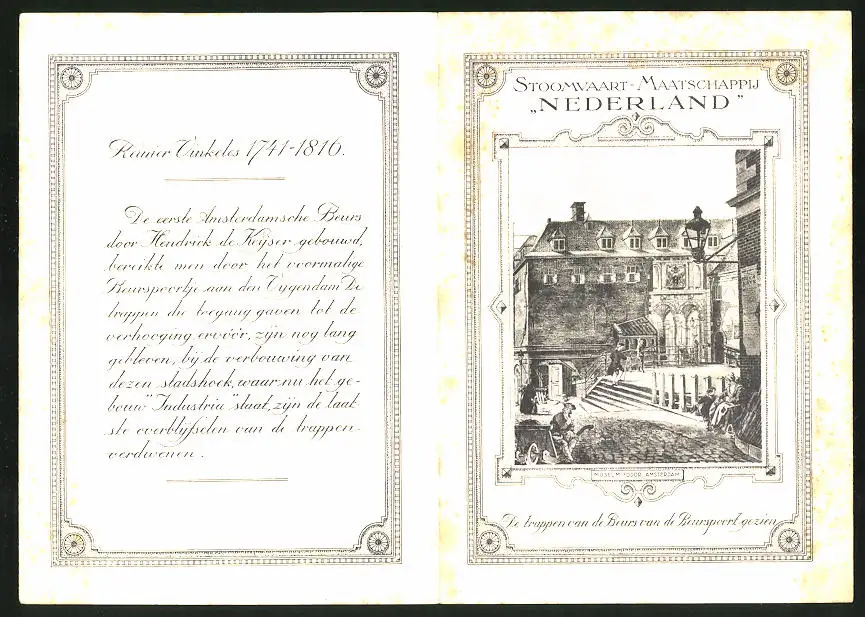 Reinier Vinkeles 1741-1816.
De eerste Amsterdamsche Beurs
door Hendrick de Keyser gebouwd,
bereikte men door het voormalige
Beurspoortje aan den Vygendam De
trappen die toegang gaven tot de
verhooging ervóór, zyn nog lang
gebleven, by de verbouwing van
dezen stadshoek, waar nu het ge-
bouw "Industria" staat, zyn de laat-
ste overblyfselen van de trappen
verdwenen.
STOOMVAART-MAATSCHAPPIJ
„NEDERLAND"
MUSEUM FODOR AMSTERDAM
De trappen van de Beurs van de Beurspoort gezien